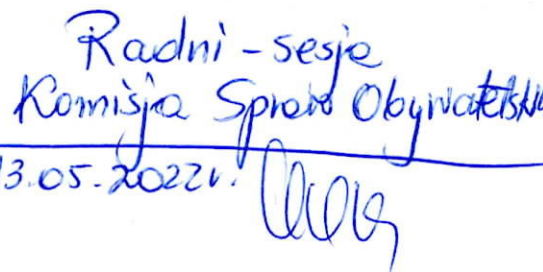 Radni - sesja
Komisja Spraw Obywatelsk
13.05.2022r.